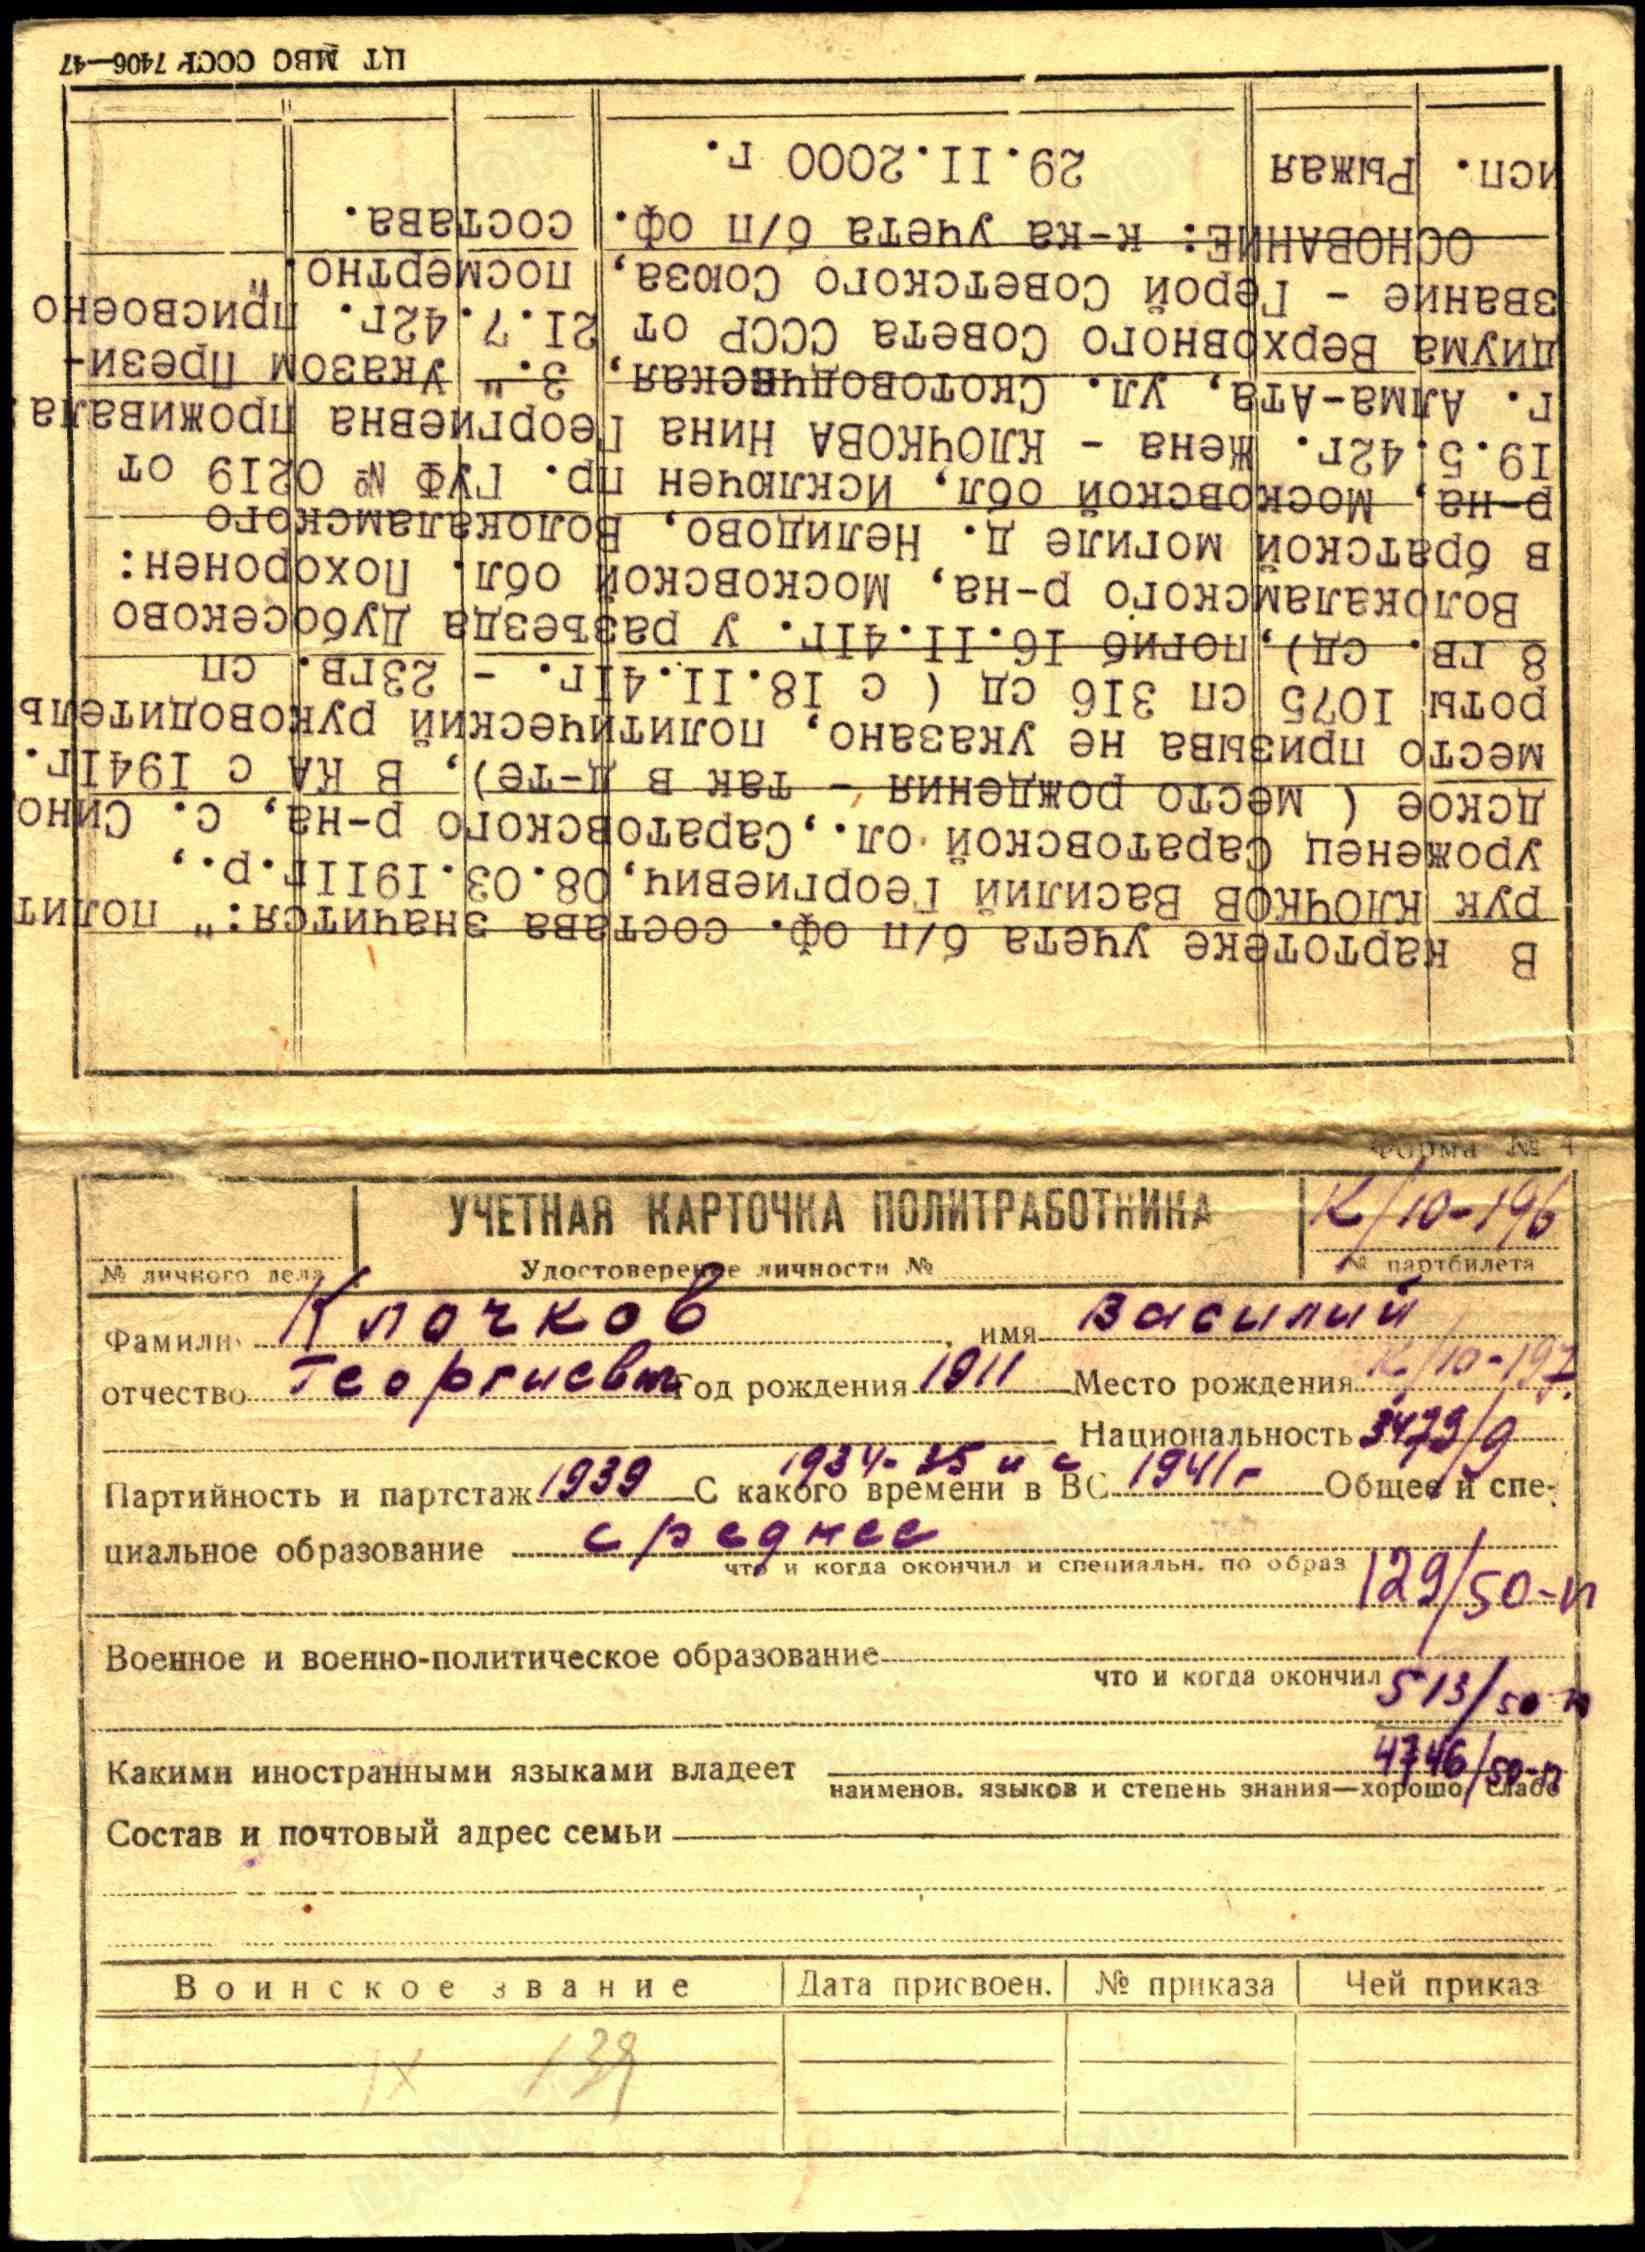 ЦТ МВС СССР 7406—47
В картотеке учета б/п оф. состава значится:" полит
рук КЛОЧКОВ Василий Георгиевич, 08.03.1911г.р.,
уроженец Саратовской ол.,Саратовского р-на, с. Сино
дское ( место рождения - так в д-те), В КА с 1941г.
место призыва не указано, политический руководитель
роты 1075 сп 316 сд ( с 18.11.41г. - 23гв. сп
8 гв. сд),погиб 16.11.41г. у разъезда Дубосеково
Волокаламского р-на, Московской обл. Похоронен:
в братской могиле д. Нелидово, Волокаламского
р-на, Московской обл. Исключен пр. ГУФ № 0219 от
19.5.42г. Жена - КЛОЧКОВА Нина Георгиевна проживала:
г. Алма-Ата, ул. Скотоводчвская, 3." Указом Прези-
диума Верховного Совета СССР от 21.7.42г. присвоено
звание - Герой Советского Союза, посмертно."
ОСНОВАНИЕ: к-ка учета б/п оф. состава.
исп. Рыжая 29.11.2000 г.
Форма № 4
УЧЕТНАЯ КАРТОЧКА ПОЛИТРАБОТНИКА К/10-196
№ личного дела Удостоверение личности № № партбилета
Фамилия Клочков, имя Василий
К/10-197
отчество Георгиевич Год рождения 1911 Место рождения
Национальность 3479/9
Партийность и партстаж 1939 С какого времени в ВС 1934-35 и с 1941г Общее и спе-
циальное образование среднее
что и когда окончил и специальн. по образ
129/50-п
Военное и военно-политическое образование
что и когда окончил
513/50-п
Какими иностранными языками владеет 4746/50-п
наименов. языков и степень знания—хорошо, слабо
Состав и почтовый адрес семьи
Воинское звание Дата присвоен. № приказа Чей приказ
139